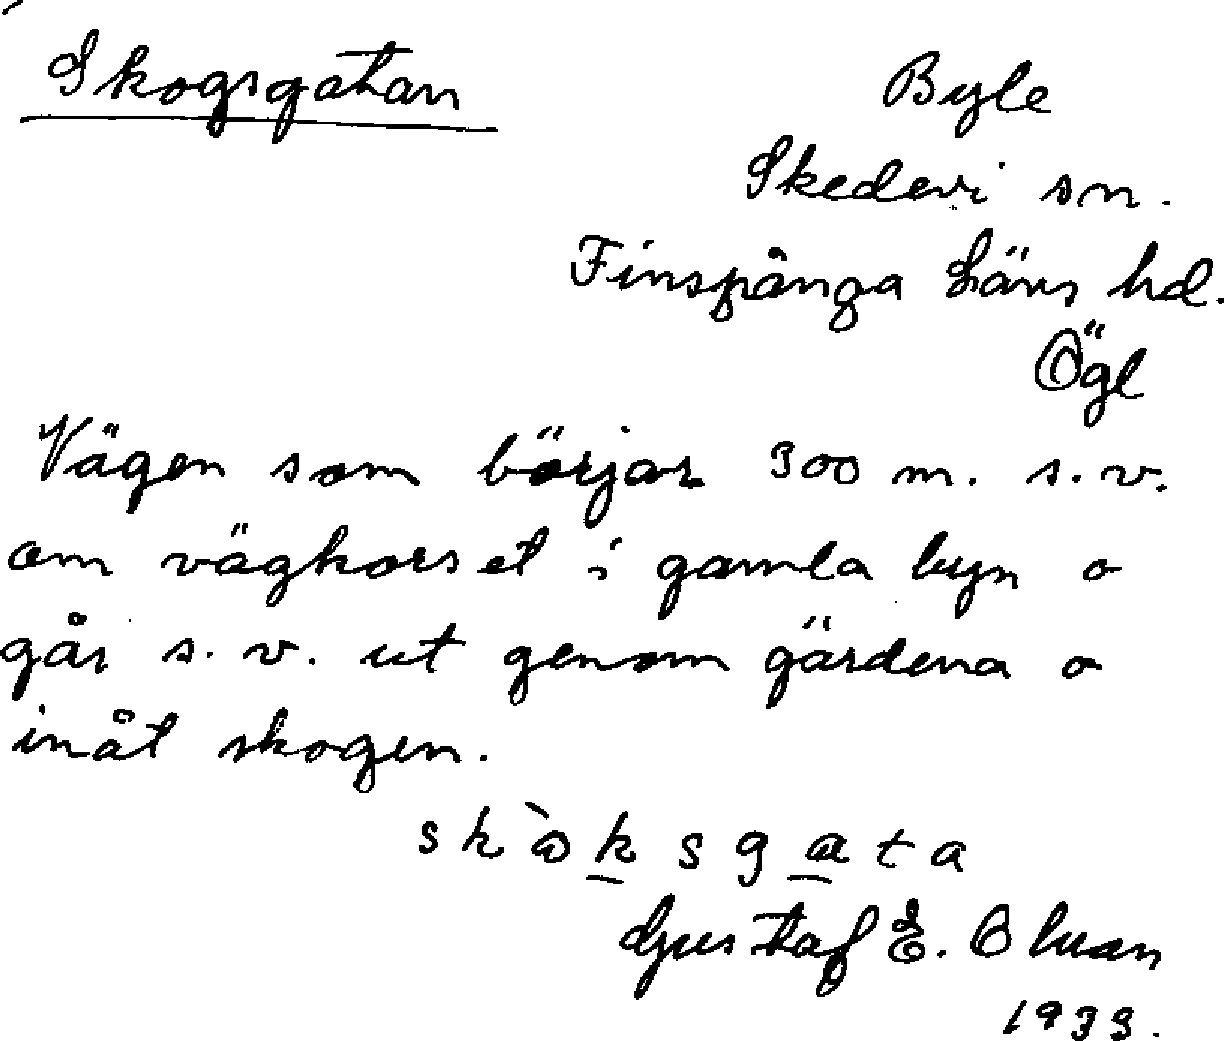 Skogsgatan
Byle
Skedevi sn.
Finspånga Läns hd.
Ögl
Vägen som börjar 300 m. s.v.
om vägkorset i gamla byn o
går s.v. ut genom gärdena o
inåt skogen.
skὼksgata
Gustaf E.
1933.